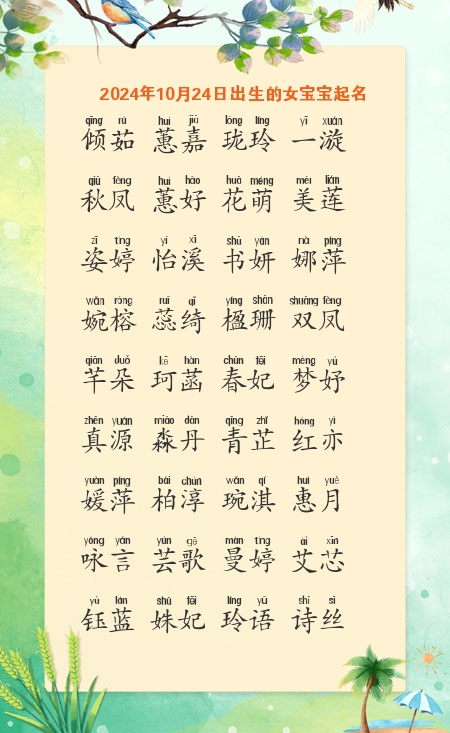 2024年10月24日出生的女宝宝起名
qīng rú huì jiā lóng líng yī xuán
倾茹 蕙嘉 珑玲 一漩
qiū fèng huì hǎo huā méng měi lián
秋凤 蕙好 花萌 美莲
zī tíng yí xī shū yán nà píng
姿婷 怡溪 书妍 娜萍
wǎn róng ruǐ qǐ yíng shān shuāng fèng
婉榕 蕊绮 楹珊 双凤
qiān duǒ kē hàn chūn fēi mèng yú
芊朵 珂菡 春妃 梦妤
zhēn yuán miǎo dān qīng zhǐ hóng yì
真源 淼丹 青芷 红亦
yuán píng bǎi chún wǎn qí huì yuè
媛萍 柏淳 琬淇 惠月
yǒng yán yún gē màn tíng ài xīn
咏言 芸歌 曼婷 艾芯
yù lán shū fēi líng yǔ shī sī
钰蓝 姝妃 玲语 诗丝